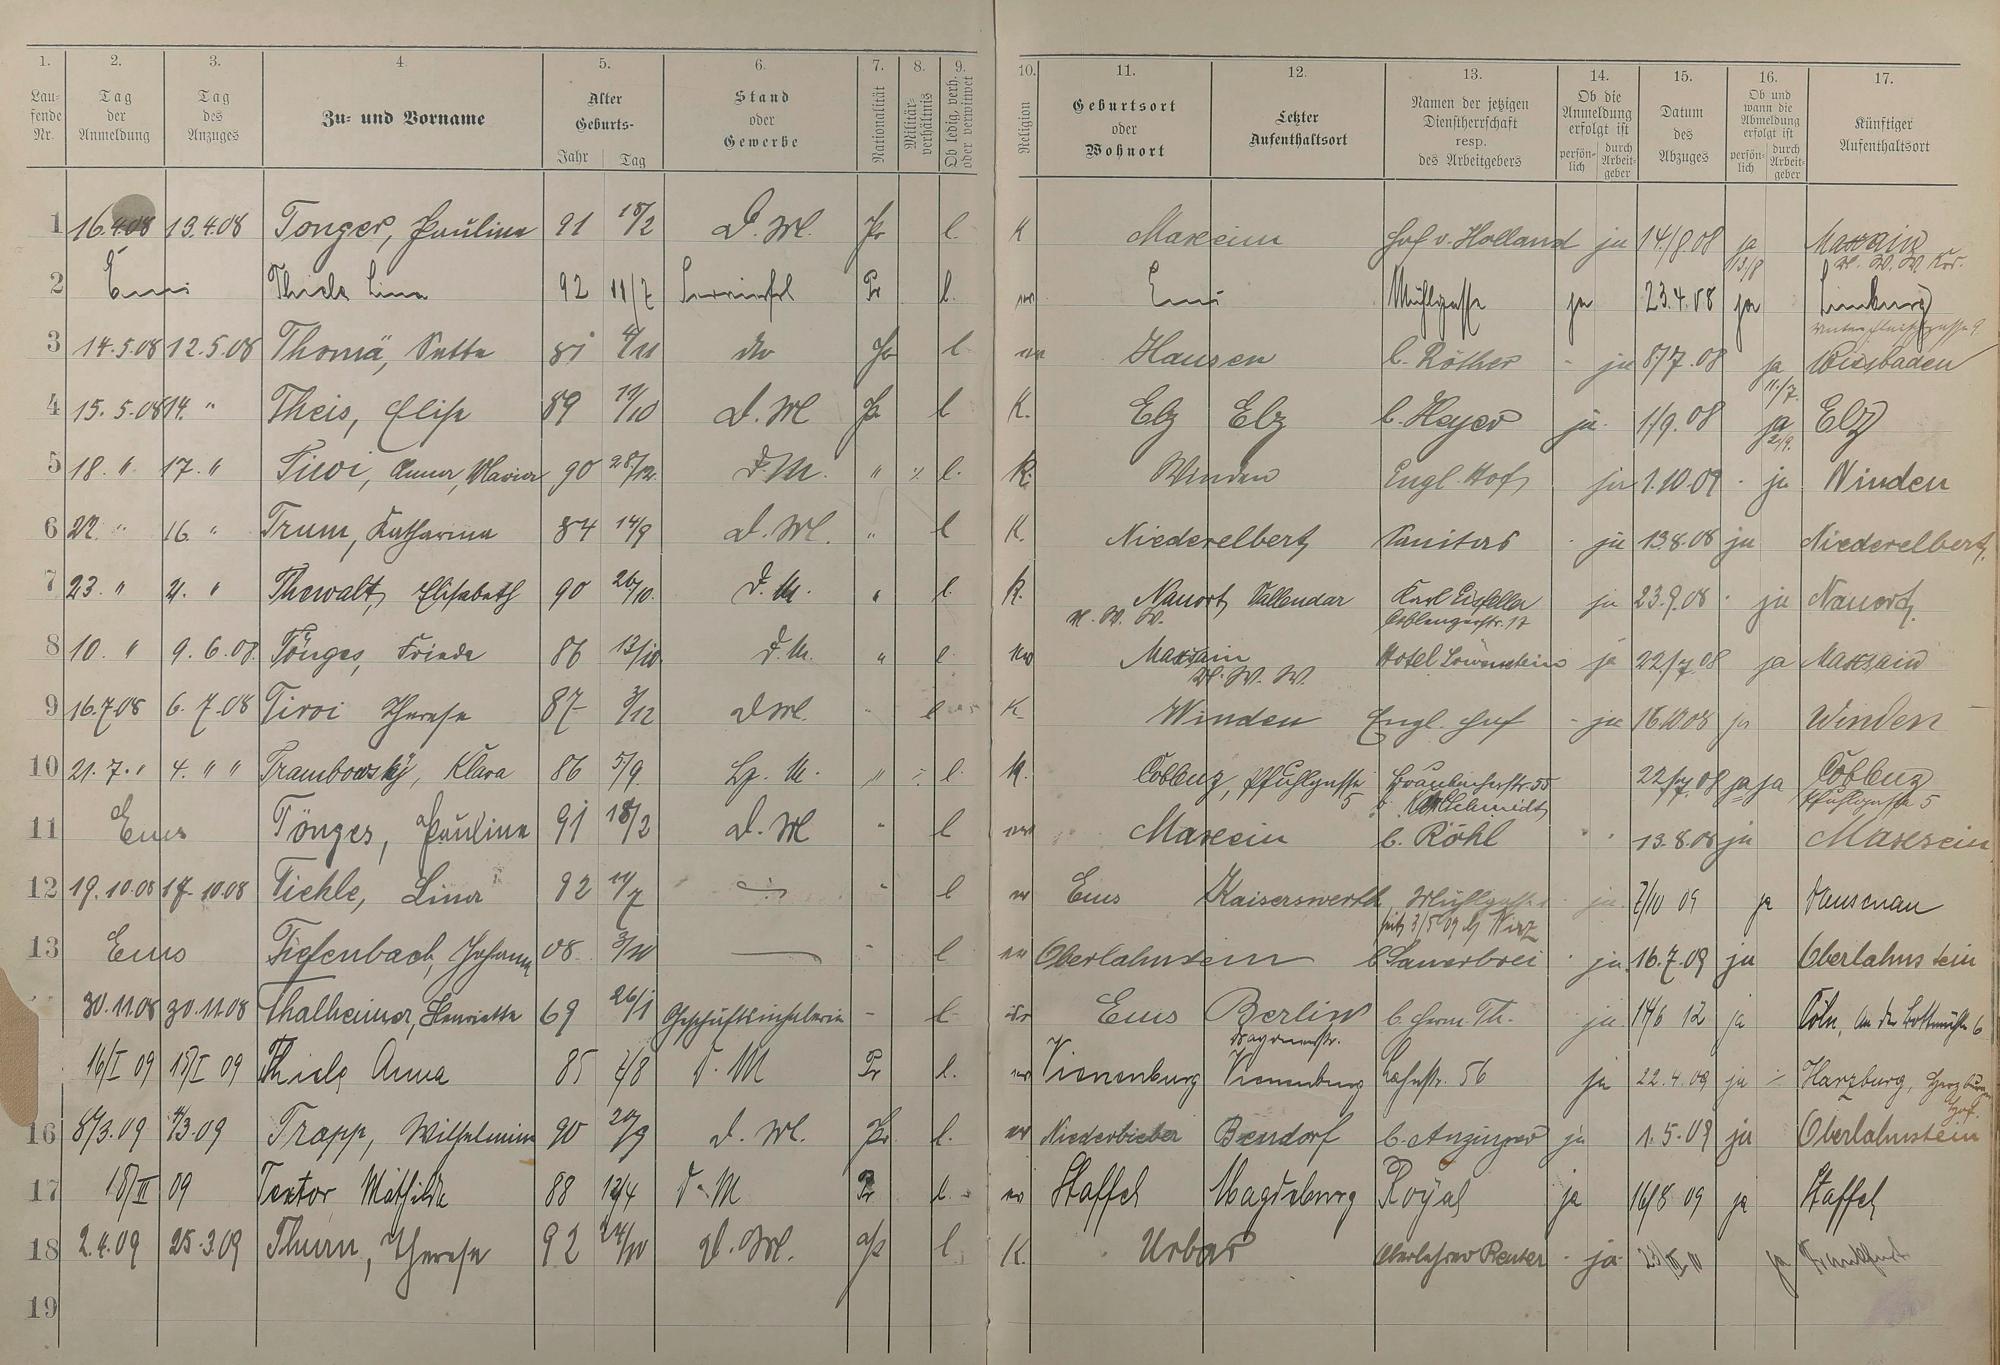 1. 2. 3. 4. 5. 6. 7. 8. 9. 10. 11. 12. 13. 14. 15. 16. 17.
Lau-fende Nr.
Tag der Anmeldung
Tag des Anzuges
Zu- und Vorname
Alter Geburts- Jahr Tag
Stand oder Gewerbe
Nationalität
Militär-verhältnis
Ob ledig, verh. oder verwitwet
Religion
Geburtsort oder Wohnort
Letzter Aufenthaltsort
Namen der jetzigen Dienstherrschaft resp. des Arbeitgebers
Ob die Anmeldung erfolgt ist persön-lich durch Arbeit-geber
Datum des Abzuges
Ob und wann die Abmeldung erfolgt ist persön-lich durch Arbeit-geber
Künftiger Aufenthaltsort
1 16.4.08 13.4.08 Tönges, Pauline 91 18/2 D. M. Pr l. K Maxein Hof v. Holland ja 14/8.08 ja 13/8 Maxain U. W. W. Kr.
2 Ems Thiele Lina 92 11/7 Pr l. ev Ems Mühlgasse ja 23.4.08 ja Limburg
3 14.5.08 12.5.08 Thomä, Sette 81 4/11 do Pr l ev Hausen b. Röther - ja 8/7.08 ja 11./7. Wiesbaden
4 15.5.08 14. " Theis, Elise 89 19/10 D. M Pr l K. Elz Elz b. Heyer ja. 1/9.08 ja 2/9. Elz
5 18. " 17. " Tiroi, Anna, Maria 90 28/12. D. M. " l. K. Winden Engl. Hof ja 1.10.09 - ja Winden
6 22. " 16. " Trum, Katharina 84 14/9 D. M. " l K. Niederelbert - ja 13.8.08 ja Niederelbert.
7 23. " 21. " Thewalt, Elisabeth 90 26/10. D. M. " l. K. Nauort Vallendar Karl Eisfeller ja 23.9.08 - ja Nauort.
U. W. W. Coblenzerstr. 17
8 10. " 9. 6. 08. Tönges, Frieda 86 13/10 D. M. " l. ev Maxsain Hotel Löwenstein ja 22/7.08 ja Maxsain
U. W. W.
9 16.7.08 6. 7.08 Tiroi Therese 87 3/12 D M. " l K Winden Engl. Hof - ja 16.10.08 ja Winden
10 21. 7. " 4. " " Trambowsky, Klara 86 5/9. " l. K. Coblenz, Pfuhlgasse 5 Braubacherstr. 55 Schmidt 22/7.08 ja ja Coblenz Pfuhlgasse 5
11 Ems Tönges, Pauline 91 18/2 D. M " l ev Maxein b. Röhl " " 13.8.08 ja Maxsein
12 19.10.08 17.10.08 Tiehle, Lina 92 11/7 " l ev Ems Kaiserswerth Mühlgasse ja. 7/10 09 ja Dausenau
13 Ems Tiefenbach, Johanna 08 3/10 - l ev Oberlahnstein b Sauerbrei - ja. 16.7.09 ja Oberlahnstein
30.11.08 30.11.08 Thalheimer, Henriette 69 26/1 Geschäftsinhaberin - l isr Ems Berlin b. Herm. Th. ja. 14/6 12 ja Cöln,
16/I 09 15/I 09 Thiele Anna 85 D. M Pr l. ev Vienenburg Vienenburg Lahnstr. 56 ja 22.4.09 ja Harzburg,
16 8/3.09 4/3.09 Trapp, Wilhelmine 90 20/9 D. M. Pr. l. ev Niederbieber Bendorf b. Anzinger ja 1.5.09 ja Oberlahnstein
17 18/III 09 Textor Mathilde 88 12/4 D. M Pr l. ev Staffel Magdeburg Royal ja 16/8 09 ja Staffel
18 2.4.09 25.3.09 Thurn, Therese 92 24/10 D. M. Pr l K. Urbar Oberlehrer Reuter - ja. ja Frankfurt
19